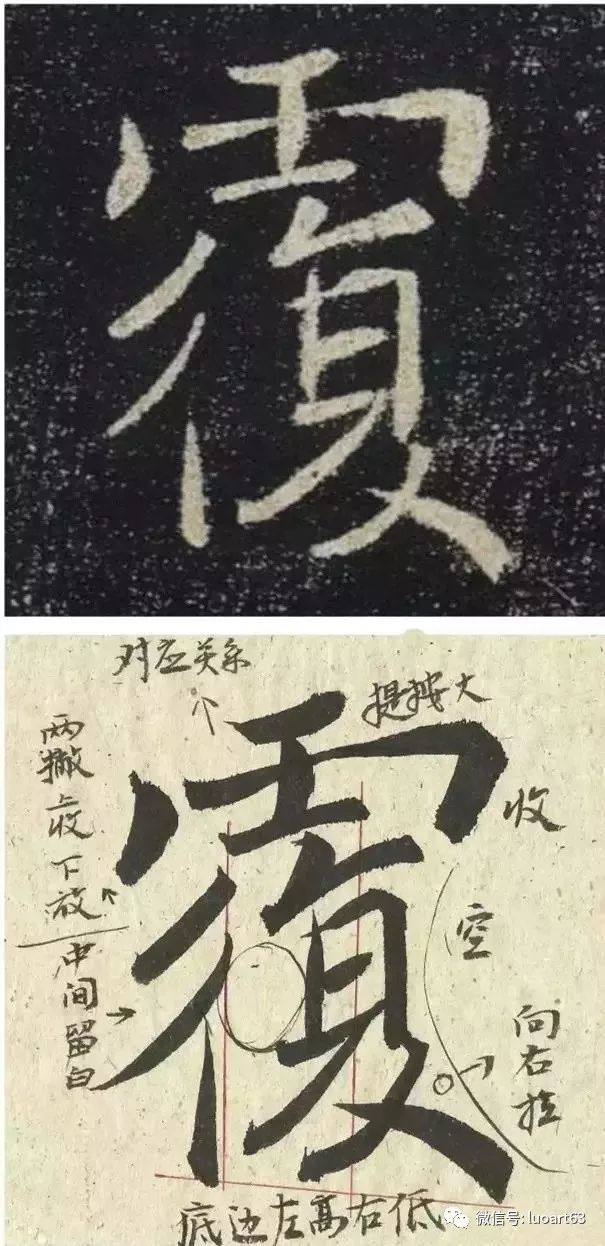 覆
对应关系
提按大
两撇上收下放
中间留白
覆
收
空
向右拉
底边左高右低
微信号: luoart63